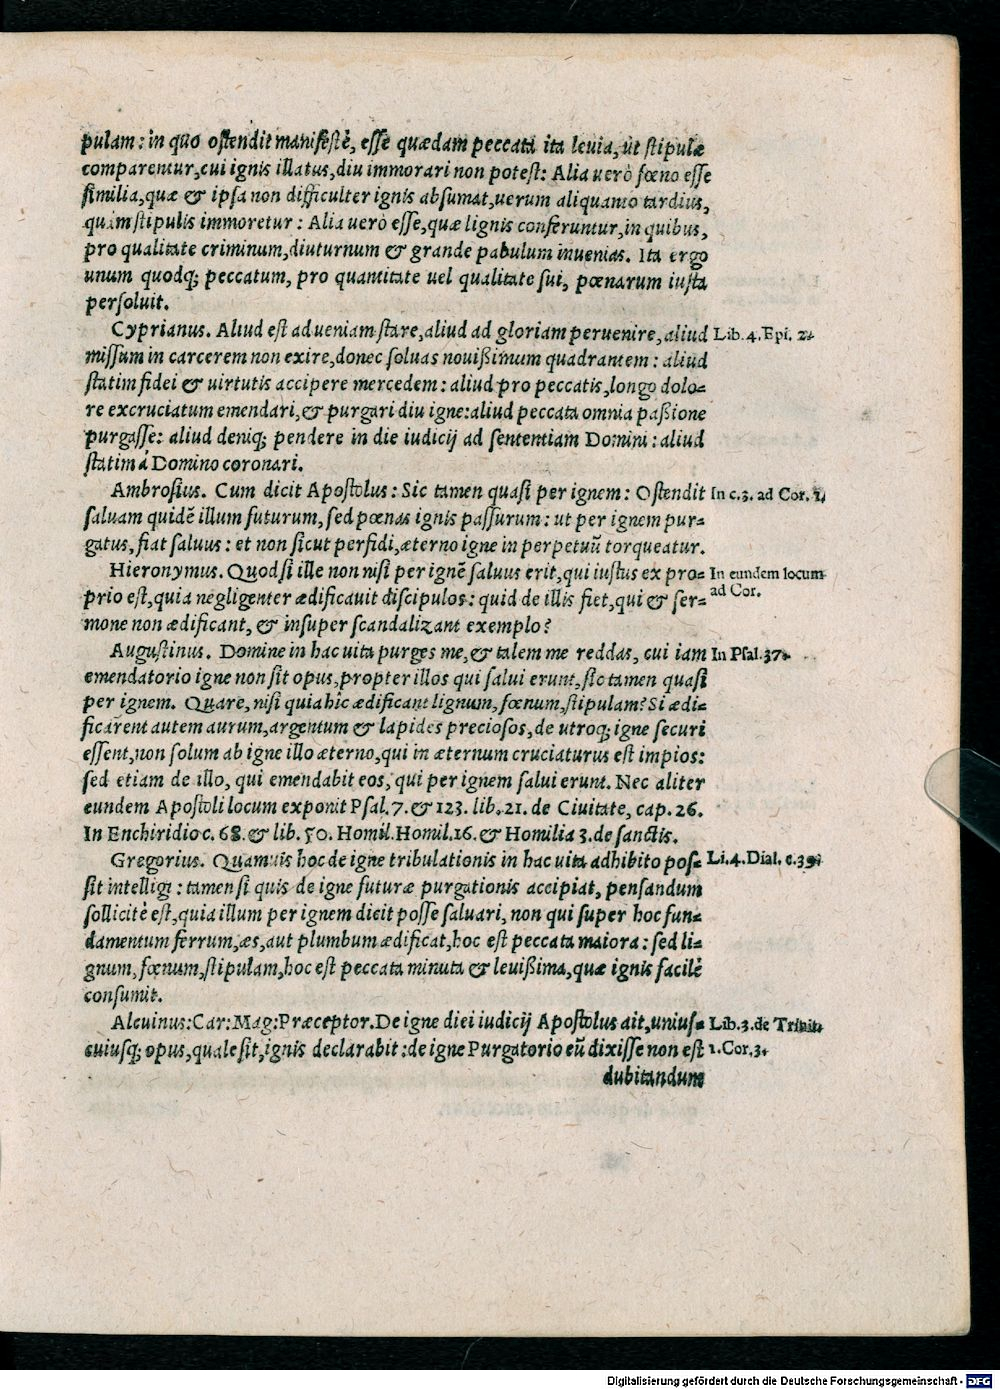 pulam: in quo ostendit manifestè, esse quædam peccata ita leuia, ut stipulæ
comparentur, cui ignis illatus, diu immorari non potest: Alia uerò fœno esse
similia, quæ & ipsa non difficulter ignis absumat, uerum aliquanto tardius,
quàm stipulis immoretur: Alia uerò esse, quæ lignis conferuntur, in quibus,
pro qualitate criminum, diuturnum & grande pabulum inuenias. Ita ergo
unum quodq; peccatum, pro quantitate uel qualitate sui, pœnarum iusta
persoluit.
Cyprianus. Aliud est ad ueniam stare, aliud ad gloriam peruenire, aliud Lib. 4. Epi. 2.
missum in carcerem non exire, donec soluas nouißimum quadrantem: aliud
statim fidei & uirtutis accipere mercedem: aliud pro peccatis, longo dolo-
re excruciatum emendari, & purgari diu igne: aliud peccata omnia paßione
purgasse: aliud deniq; pendere in die iudicij ad sententiam Domini: aliud
statim à Domino coronari.
Ambrosius. Cum dicit Apostolus: Sic tamen quasi per ignem: Ostendit In c. 3. ad Cor. 1.
saluam quidē illum futurum, sed pœnas ignis passurum: ut per ignem pur-
gatus, fiat saluus: et non sicut perfidi, æterno igne in perpetuū torqueatur.
Hieronymus. Quod si ille non nisi per ignē saluus erit, qui iustus ex pro- In eundem locum
prio est, quia negligenter ædificauit discipulos: quid de illis fiet, qui & ser- ad Cor.
mone non ædificant, & insuper scandalizant exemplo?
Augustinus. Domine in hac uita purges me, & talem me reddas, cui iam In Psal. 37.
emendatorio igne non sit opus, propter illos qui salui erunt, sic tamen quasi
per ignem. Quare, nisi quia hic ædificant lignum, fœnum, stipulam? Si ædi-
ficarent autem aurum, argentum & lapides preciosos, de utroq; igne securi
essent, non solum ab igne illo æterno, qui in æternum cruciaturus est impios:
sed etiam de illo, qui emendabit eos, qui per ignem salui erunt. Nec aliter
eundem Apostoli locum exponit Psal. 7. & 123. lib. 21. de Ciuitate, cap. 26.
In Enchiridio c. 68. & lib. 50. Homil. Homil. 16. & Homilia 3. de sanctis.
Gregorius. Quamuis hoc de igne tribulationis in hac uita adhibito pos- Li. 4. Dial. c. 39.
sit intelligi: tamen si quis de igne futuræ purgationis accipiat, pensandum
sollicitè est, quia illum per ignem dicit posse saluari, non qui super hoc fun-
damentum ferrum, æs, aut plumbum ædificat, hoc est peccata maiora: sed li-
gnum, fœnum, stipulam, hoc est peccata minuta & leuißima, quæ ignis facilè
consumit.
Alcuinus: Car: Mag: Præceptor. De igne diei iudicij Apostolus ait, unius- Lib. 3. de Trinit.
cuiusq; opus, quale sit, ignis declarabit: de igne Purgatorio eū dixisse non est 1. Cor. 3.
dubitandum
Digitalisierung gefördert durch die Deutsche Forschungsgemeinschaft - DFG